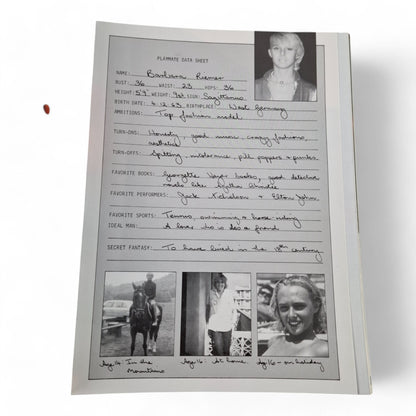 PLAYMATE DATA SHEET
NAME: Barbara Riemer
BUST: 36 WAIST: 23 HIPS: 36
HEIGHT: 5'9" WEIGHT: 9st SIGN: Sagittarius
BIRTH DATE: 4.12.63 BIRTHPLACE: West Germany
AMBITIONS: Top fashion model
TURN-ONS: Honesty, good music, crazy fashions,
aesthetics
TURN-OFFS: Spitting, intolerance, pill poppers + junkies.
FAVORITE BOOKS: Georgette Heyer books, good detective
novels like Agatha Christie
FAVORITE PERFORMERS: Jack Nicholson + Elton John.
FAVORITE SPORTS: Tennis, swimming + horse-riding
IDEAL MAN: A lover who is also a friend
SECRET FANTASY: To have lived in the 18th century
Age 14: In the
Mountains
Age 16: At home
Age 16 - on holiday